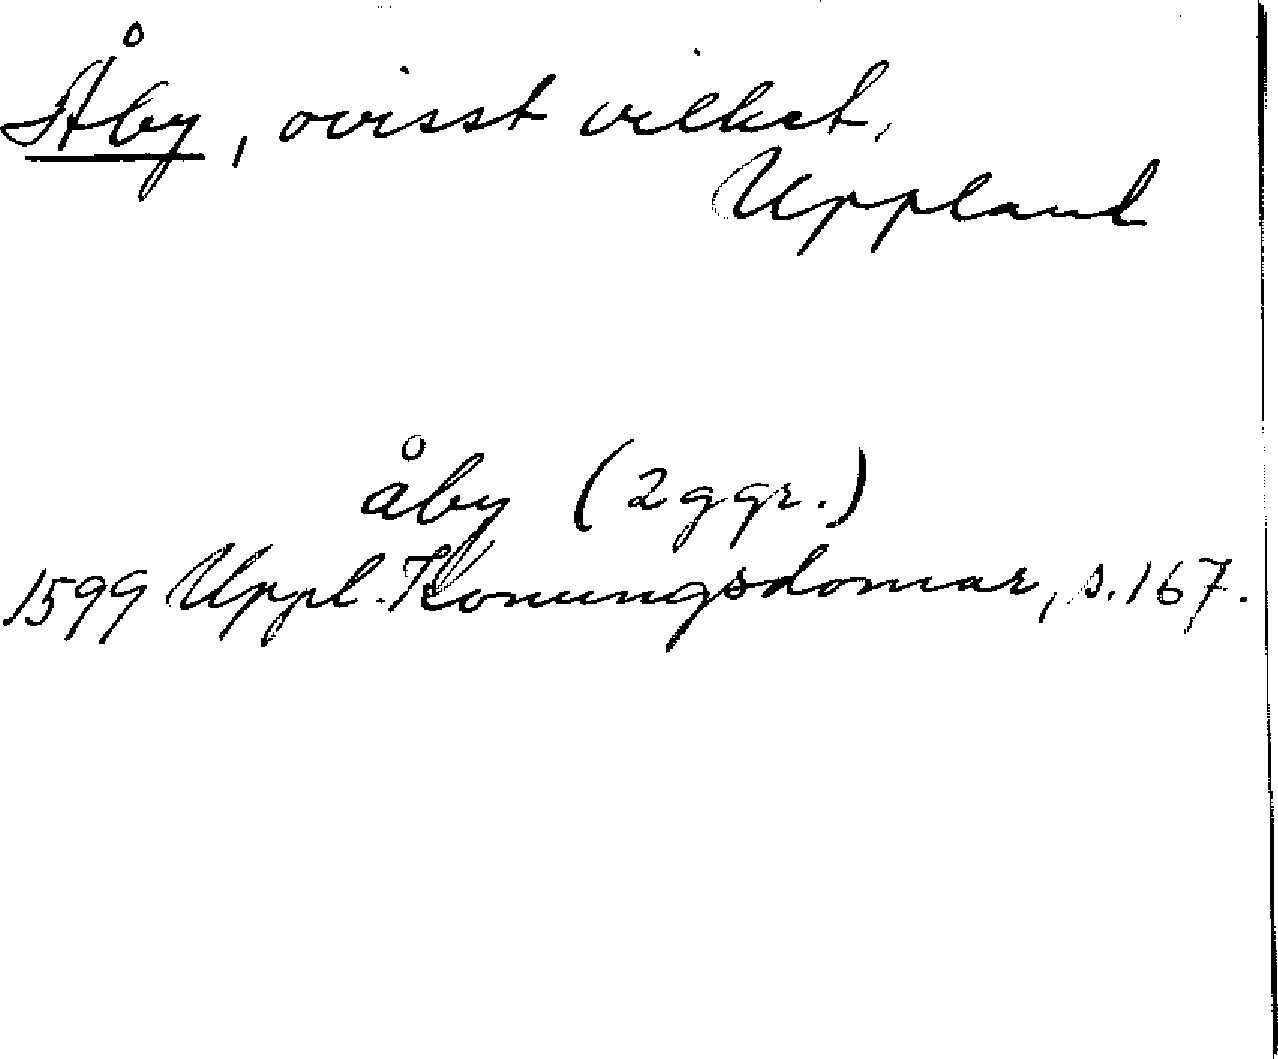 Åby, ovisst vilket,
Uppland
åby (2 ggr.)
1599 Uppl. Konungsdomar, s. 167.